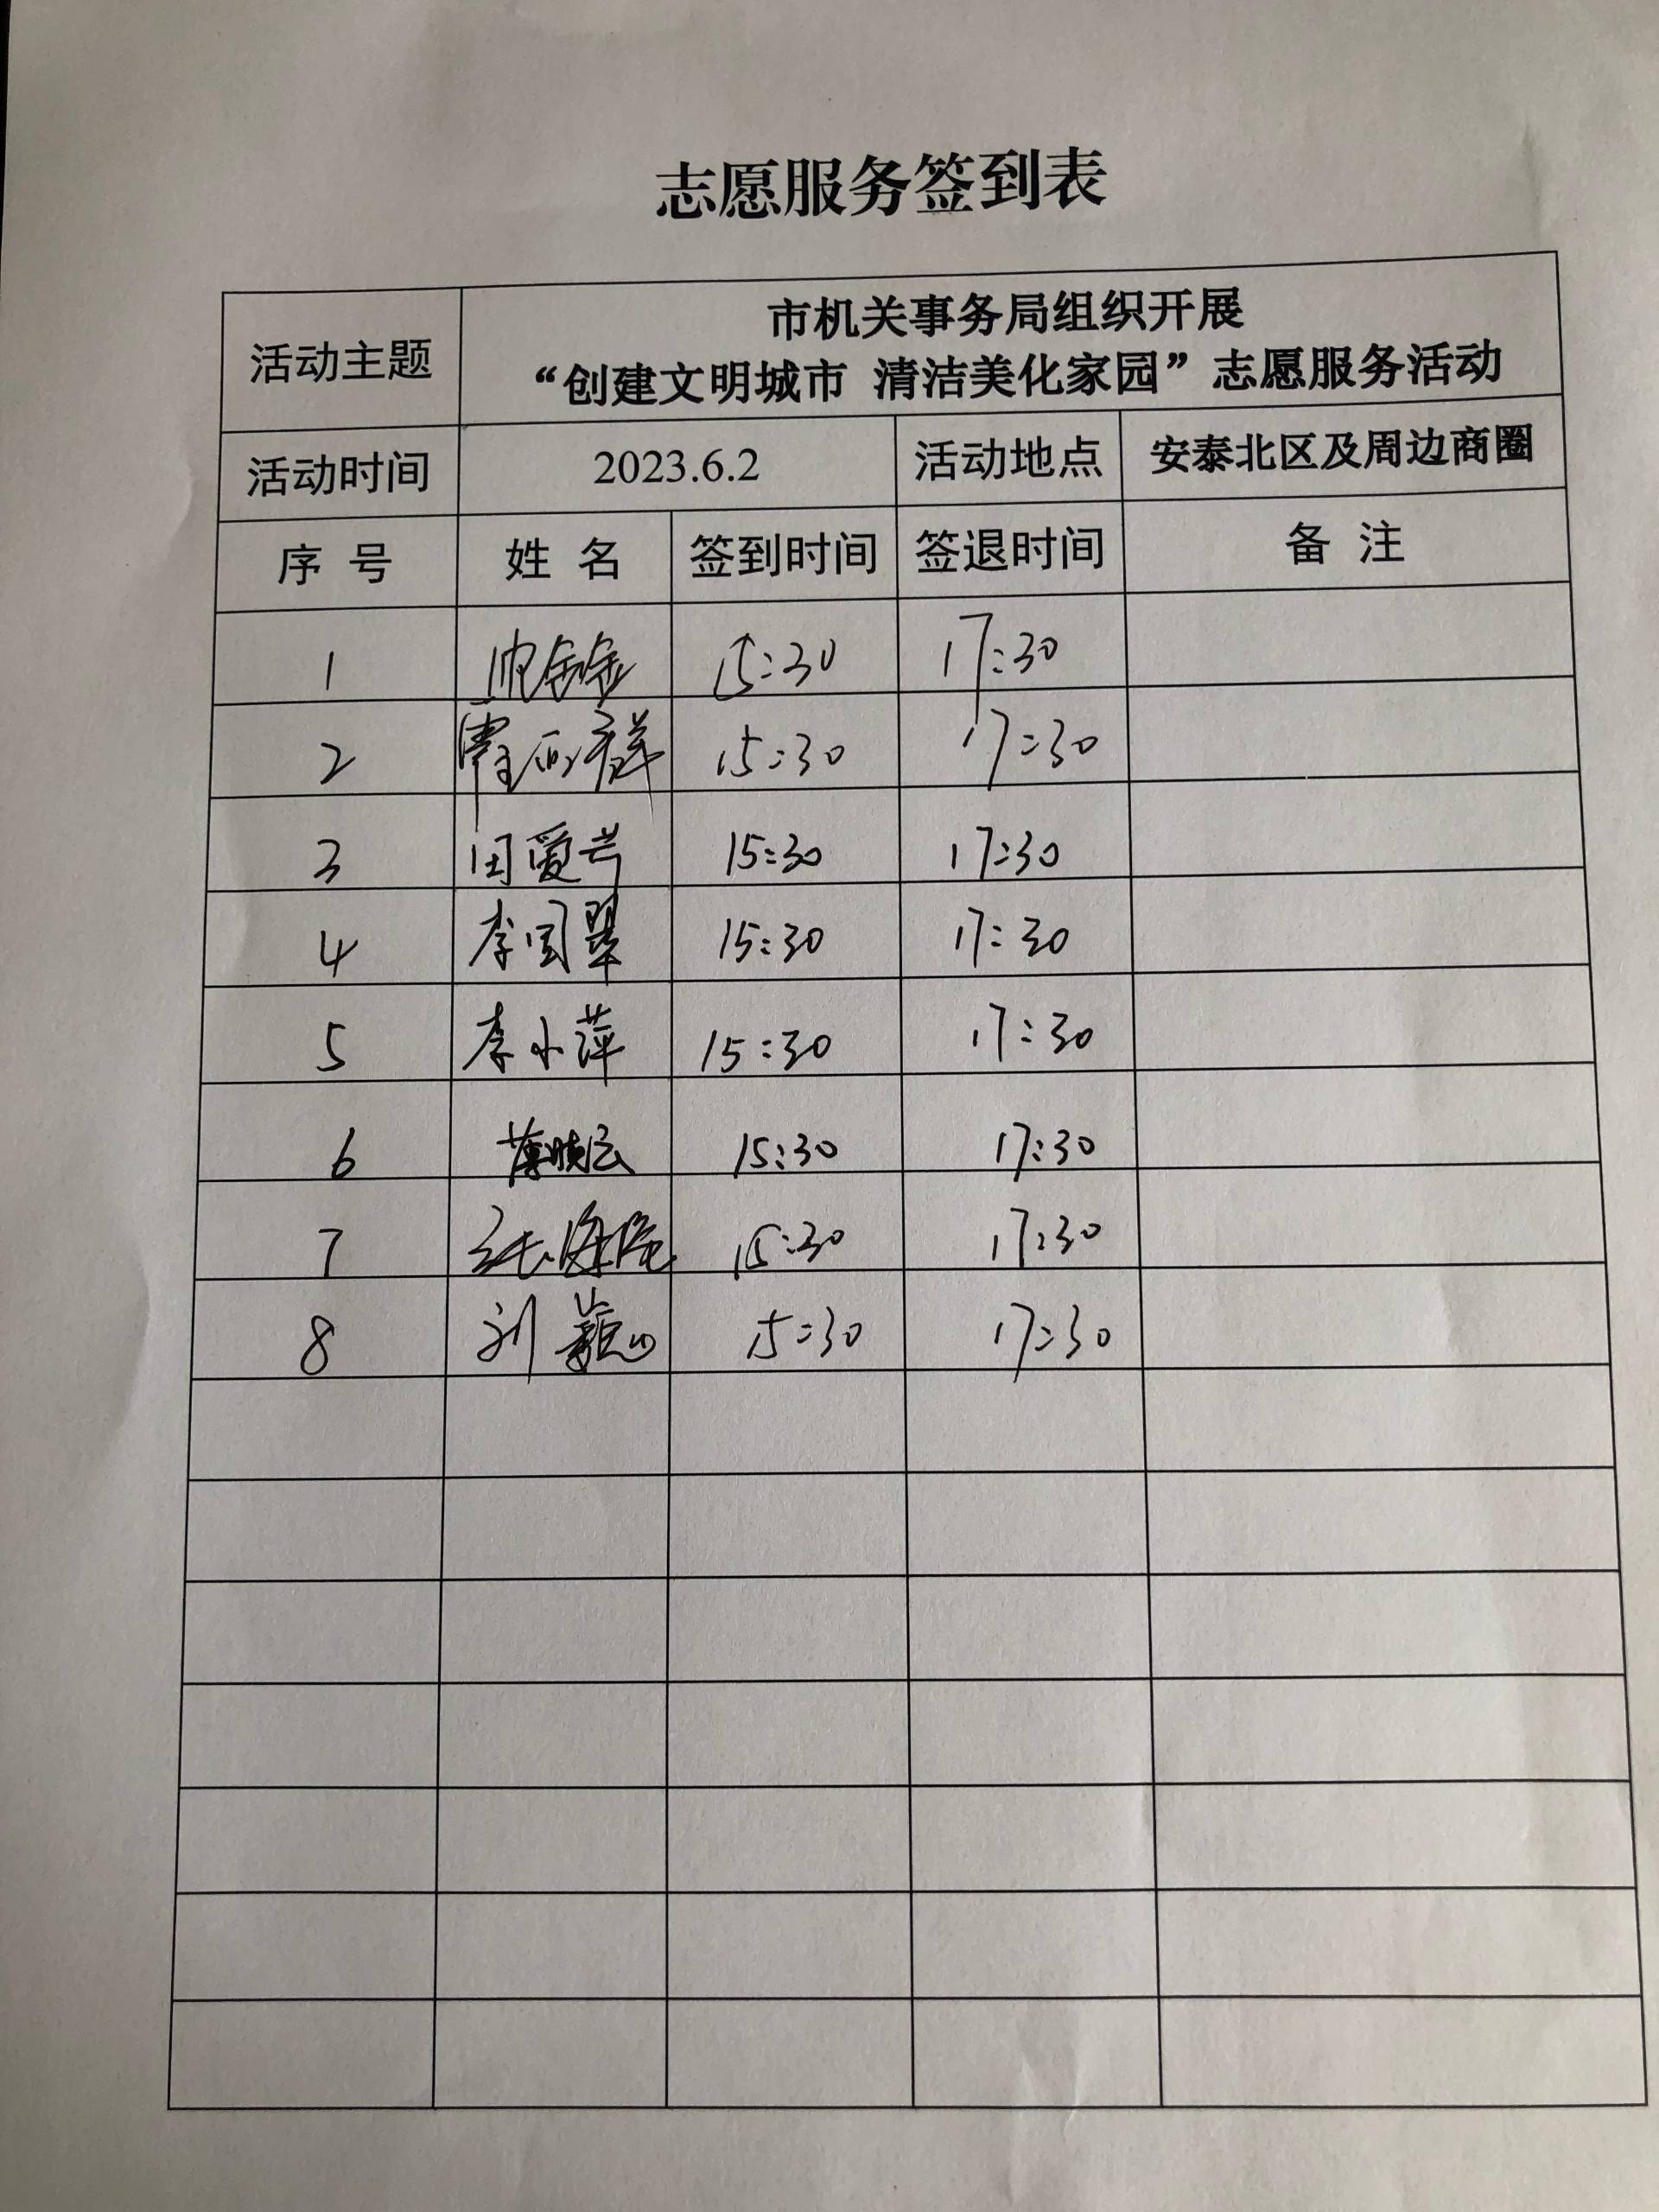 志愿服务签到表
活动主题
市机关事务局组织开展
“创建文明城市 清洁美化家园”志愿服务活动
活动时间 2023.6.2 活动地点 安泰北区及周边商圈
序 号 姓 名 签到时间 签退时间 备 注
1 15:30 17:30
2 15:30 17:30
3 田爱芳 15:30 17:30
4 李国翠 15:30 17:30
5 李小萍 15:30 17:30
6 薄晓云 15:30 17:30
7 15:30 17:30
8 刘 15:30 17:30